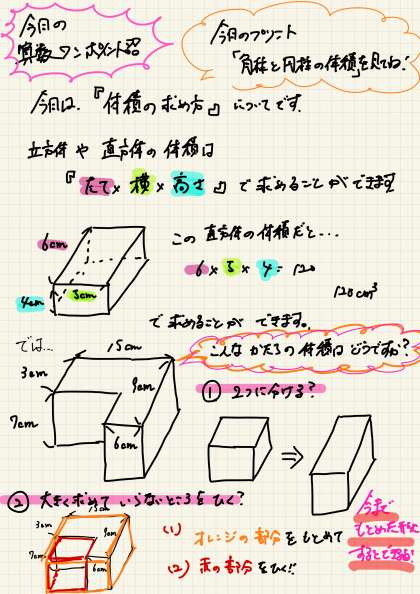 今日の
算数ワンポイント㊙
今日のプリント
「角柱と円柱の体積」を見てね!
今日は、『体積の求め方』についてです。
立方体や直方体の体積は
『たて×横×高さ』で求めることができます
6cm
4cm
5cm
この直方体の体積だと…
6×5×4=120
120cm³
で求めることができます。
では…
15cm
3cm
9cm
7cm
6cm
こんなかたちの体積はどうですか?
① 2つに分ける?
② 大きく求めていらないところをひく?
15cm
3cm
9cm
7cm
6cm
(1) オレンジの部分をもとめて
(2) 赤の部分をひく!!
今まで
もとめた
すると